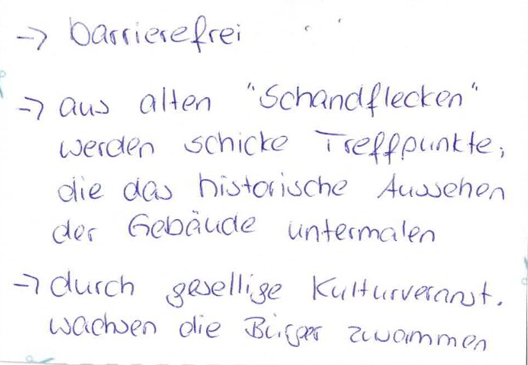 → barrierefrei
→ aus alten "Schandflecken"
werden schicke Treffpunkte,
die das historische Aussehen
der Gebäude untermalen
→ durch gesellige Kulturveranst.
wachsen die Bürger zusammen